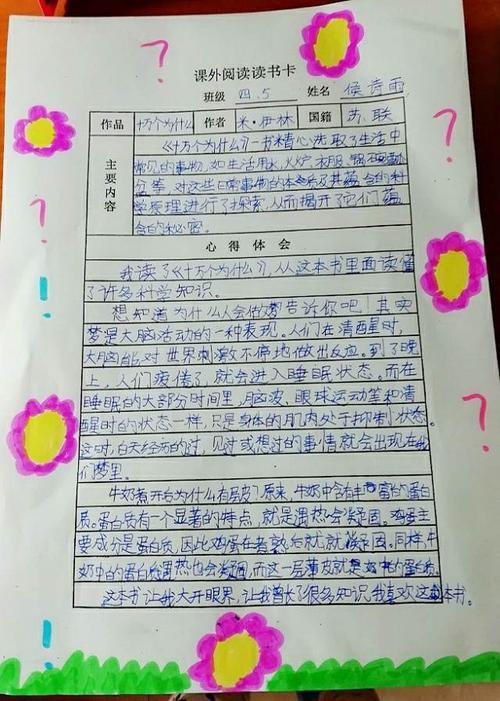 课外阅读读书卡
班级 四.5 姓名 侯诗雨
作品 十万个为什么 作者 米·伊林 国籍 苏联
主要内容
《十万个为什么》一书精心选取了生活中
常见的事物,如生活用水,火炉,衣服,
等,对这些日常事物的本质及其蕴含的科
学原理进行了探索,从而揭开了它们蕴
含的秘密。
心得体会
我读了《十万个为什么》,从这本书里面读懂
了许多科学知识。
想知道为什么人会做梦?告诉你吧!其实
梦是大脑活动的一种表现。人们在清醒时,
大脑能对世界刺激不停地做出反应。到了晚
上,人们疲倦了,就会进入睡眠状态。而在
睡眠的大部分时间里,脑波、眼球运动等和清
醒时的状态一样,只是身体的肌肉处于抑制状态。
这时,白天经历的过,见过或想过的事情就会出现在我
们梦里。
牛奶煮开后为什么有层皮?原来,牛奶中含有丰富的蛋白
质。蛋白质有一个显著的特点,就是遇热会凝固。鸡蛋主
要成分是蛋白质,因此鸡蛋在煮熟后就就凝固。同样,牛
奶中的蛋白质遇热也会凝固,而这一层薄皮就是奶中的蛋白质。
这本书让我大开眼界,让我增长了很多知识,我喜欢这本书。